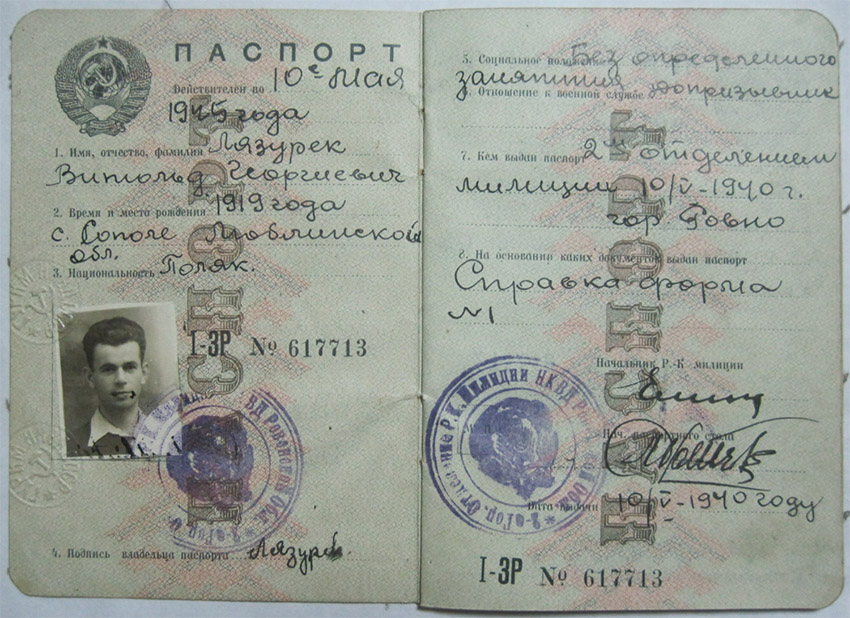 ПАСПОРТ
Действителен по 10е Мая
1945 года
1. Имя, отчество, фамилия Лязурек
Витольд Георгиевич
2. Время и место рождения 1919 года
с. Сополе Люблинской
обл.
3. Национальность Поляк.
I-ЗР № 617713
4. Подпись владельца паспорта Лязурек
5. Социальное положение Без определенного
занятия
6. Отношение к военной службе допризывник
7. Кем выдан паспорт 2м отделением
милиции 10/V-1940 г.
гор. Ровно
8. На основании каких документов выдан паспорт
Справка форма
№1
Начальник Р.-К милиции
Нач. паспортного стола
Дата выдачи 10/V-1940 году
I-ЗР № 617713